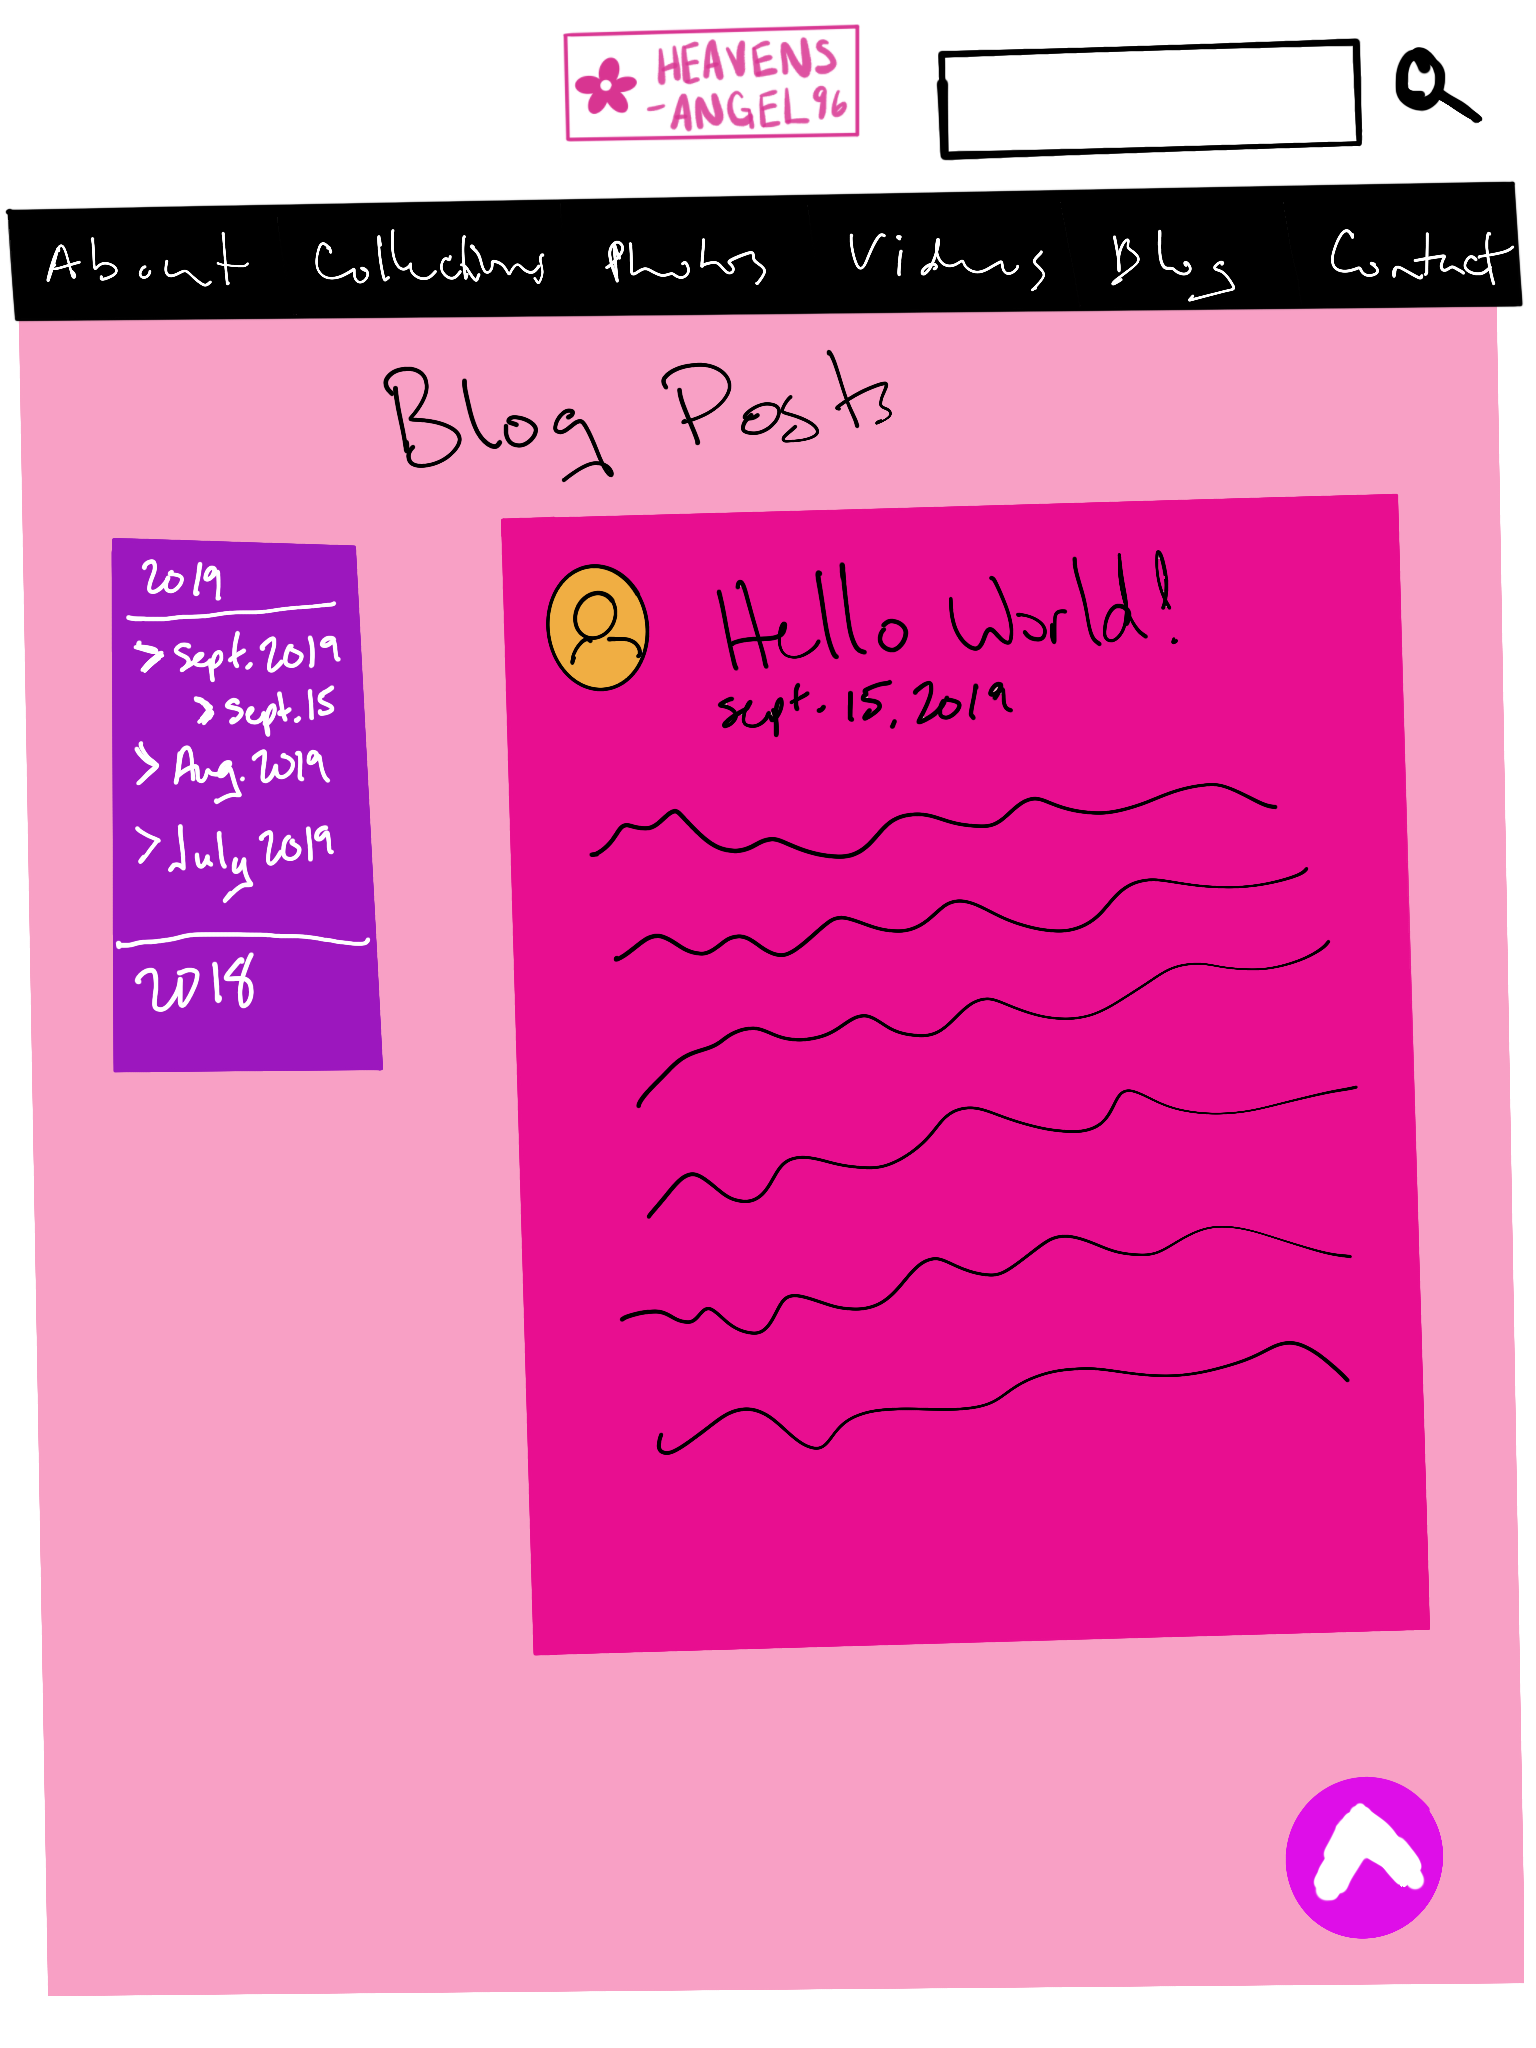 HEAVENS
-ANGEL96
About Collections Photos Videos Blog Contact
Blog Posts
2019
> Sept. 2019
> Sept. 15
> Aug. 2019
> July 2019
2018
Hello World!
sept. 15, 2019